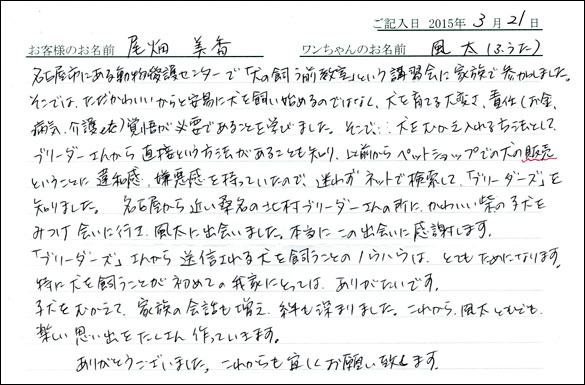 ご記入日 2015年 3月 21日
お客様のお名前 尾畑 美香 ワンちゃんのお名前 風太(ふうた)
名古屋市にある動物愛護センターで「犬の飼う前教室」という講習会に家族で参加しました。
そこでは、ただかわいいからと安易に犬を飼い始めるのではなく、犬を育てる大変さ、責任(お金、
病気、介護など)覚悟が必要であることを学びました。そこで、犬をむかえ入れる方法として、
ブリーダーさんから直接という方法があることも知り、以前からペットショップでの犬の販売
ということに違和感、嫌悪感を持っていたので、迷わずネットで検索して、「ブリーダーズ」を
知りました。 名古屋から近い桑名の北村ブリーダーさんの所に、かわいい柴の子犬を
みつけ会いに行き、風太に出会いました。本当にこの出会いに感謝します。
「ブリーダーズ」さんから送信される犬を飼うことのノウハウは、とてもためになります。
特に犬を飼うことが初めての我家にとっては、ありがたいです。
子犬をむかえて、家族の会話も増え、絆も深まりました。これから、風太とともども、
楽しい思い出をたくさん作っていきます。
ありがとうございました。これからも宜しくお願い致します。